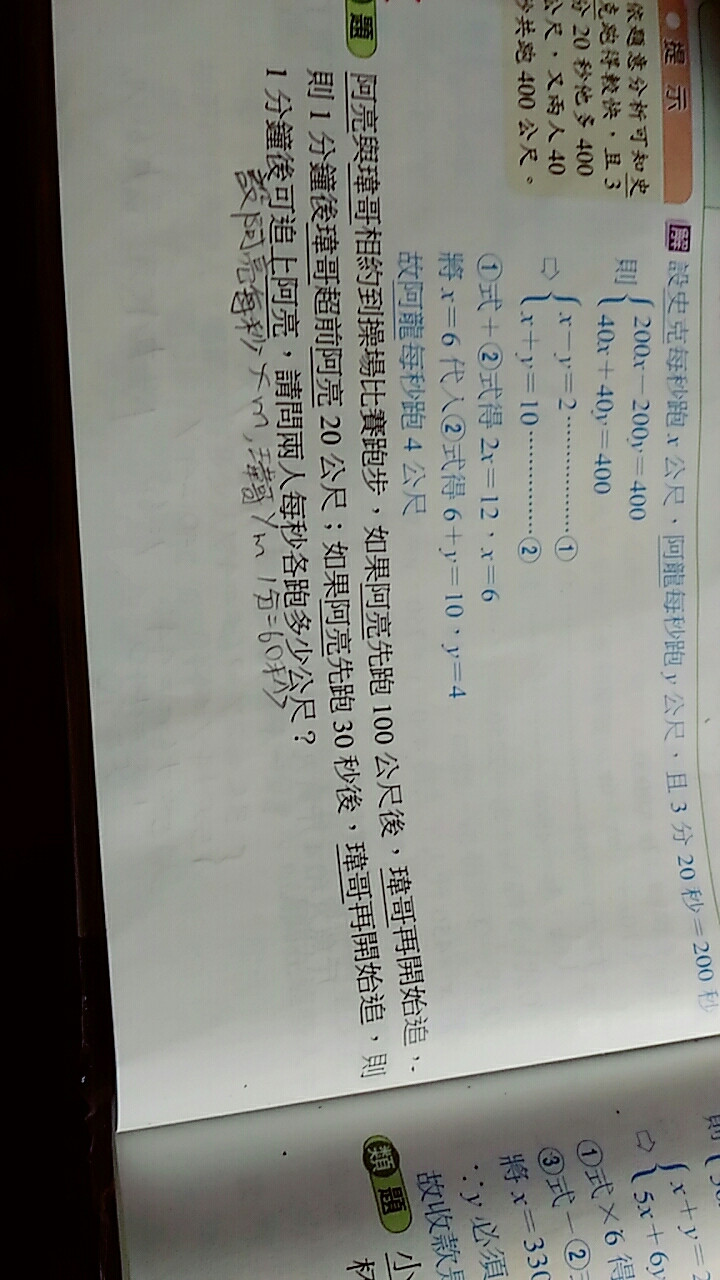 提 示
依題意分析可知史
克跑得較快，且 3
分 20 秒他多 400
公尺，又兩人 40
秒共跑 400 公尺。
解 設史克每秒跑 x 公尺，阿龍每秒跑 y 公尺，且 3 分 20 秒＝200 秒
則 { 200x－200y＝400
40x＋40y＝400
⇨ { x－y＝2 …………… ①
x＋y＝10 ………… ②
①式＋②式得 2x＝12，x＝6
將 x＝6 代入②式得 6＋y＝10，y＝4
故阿龍每秒跑 4 公尺
題 阿亮與瑋哥相約到操場比賽跑步，如果阿亮先跑 100 公尺後，瑋哥再開始追，
則 1 分鐘後瑋哥超前阿亮 20 公尺；如果阿亮先跑 30 秒後，瑋哥再開始追，則
1 分鐘後可追上阿亮，請問兩人每秒各跑多少公尺？
設阿亮每秒 x m，瑋哥 y m 1分=60秒
則
⇨ { x＋y＝
5x＋6y
①式×6 得
③式－②
將 x＝330
∵y 必須
故收款
類 題 小